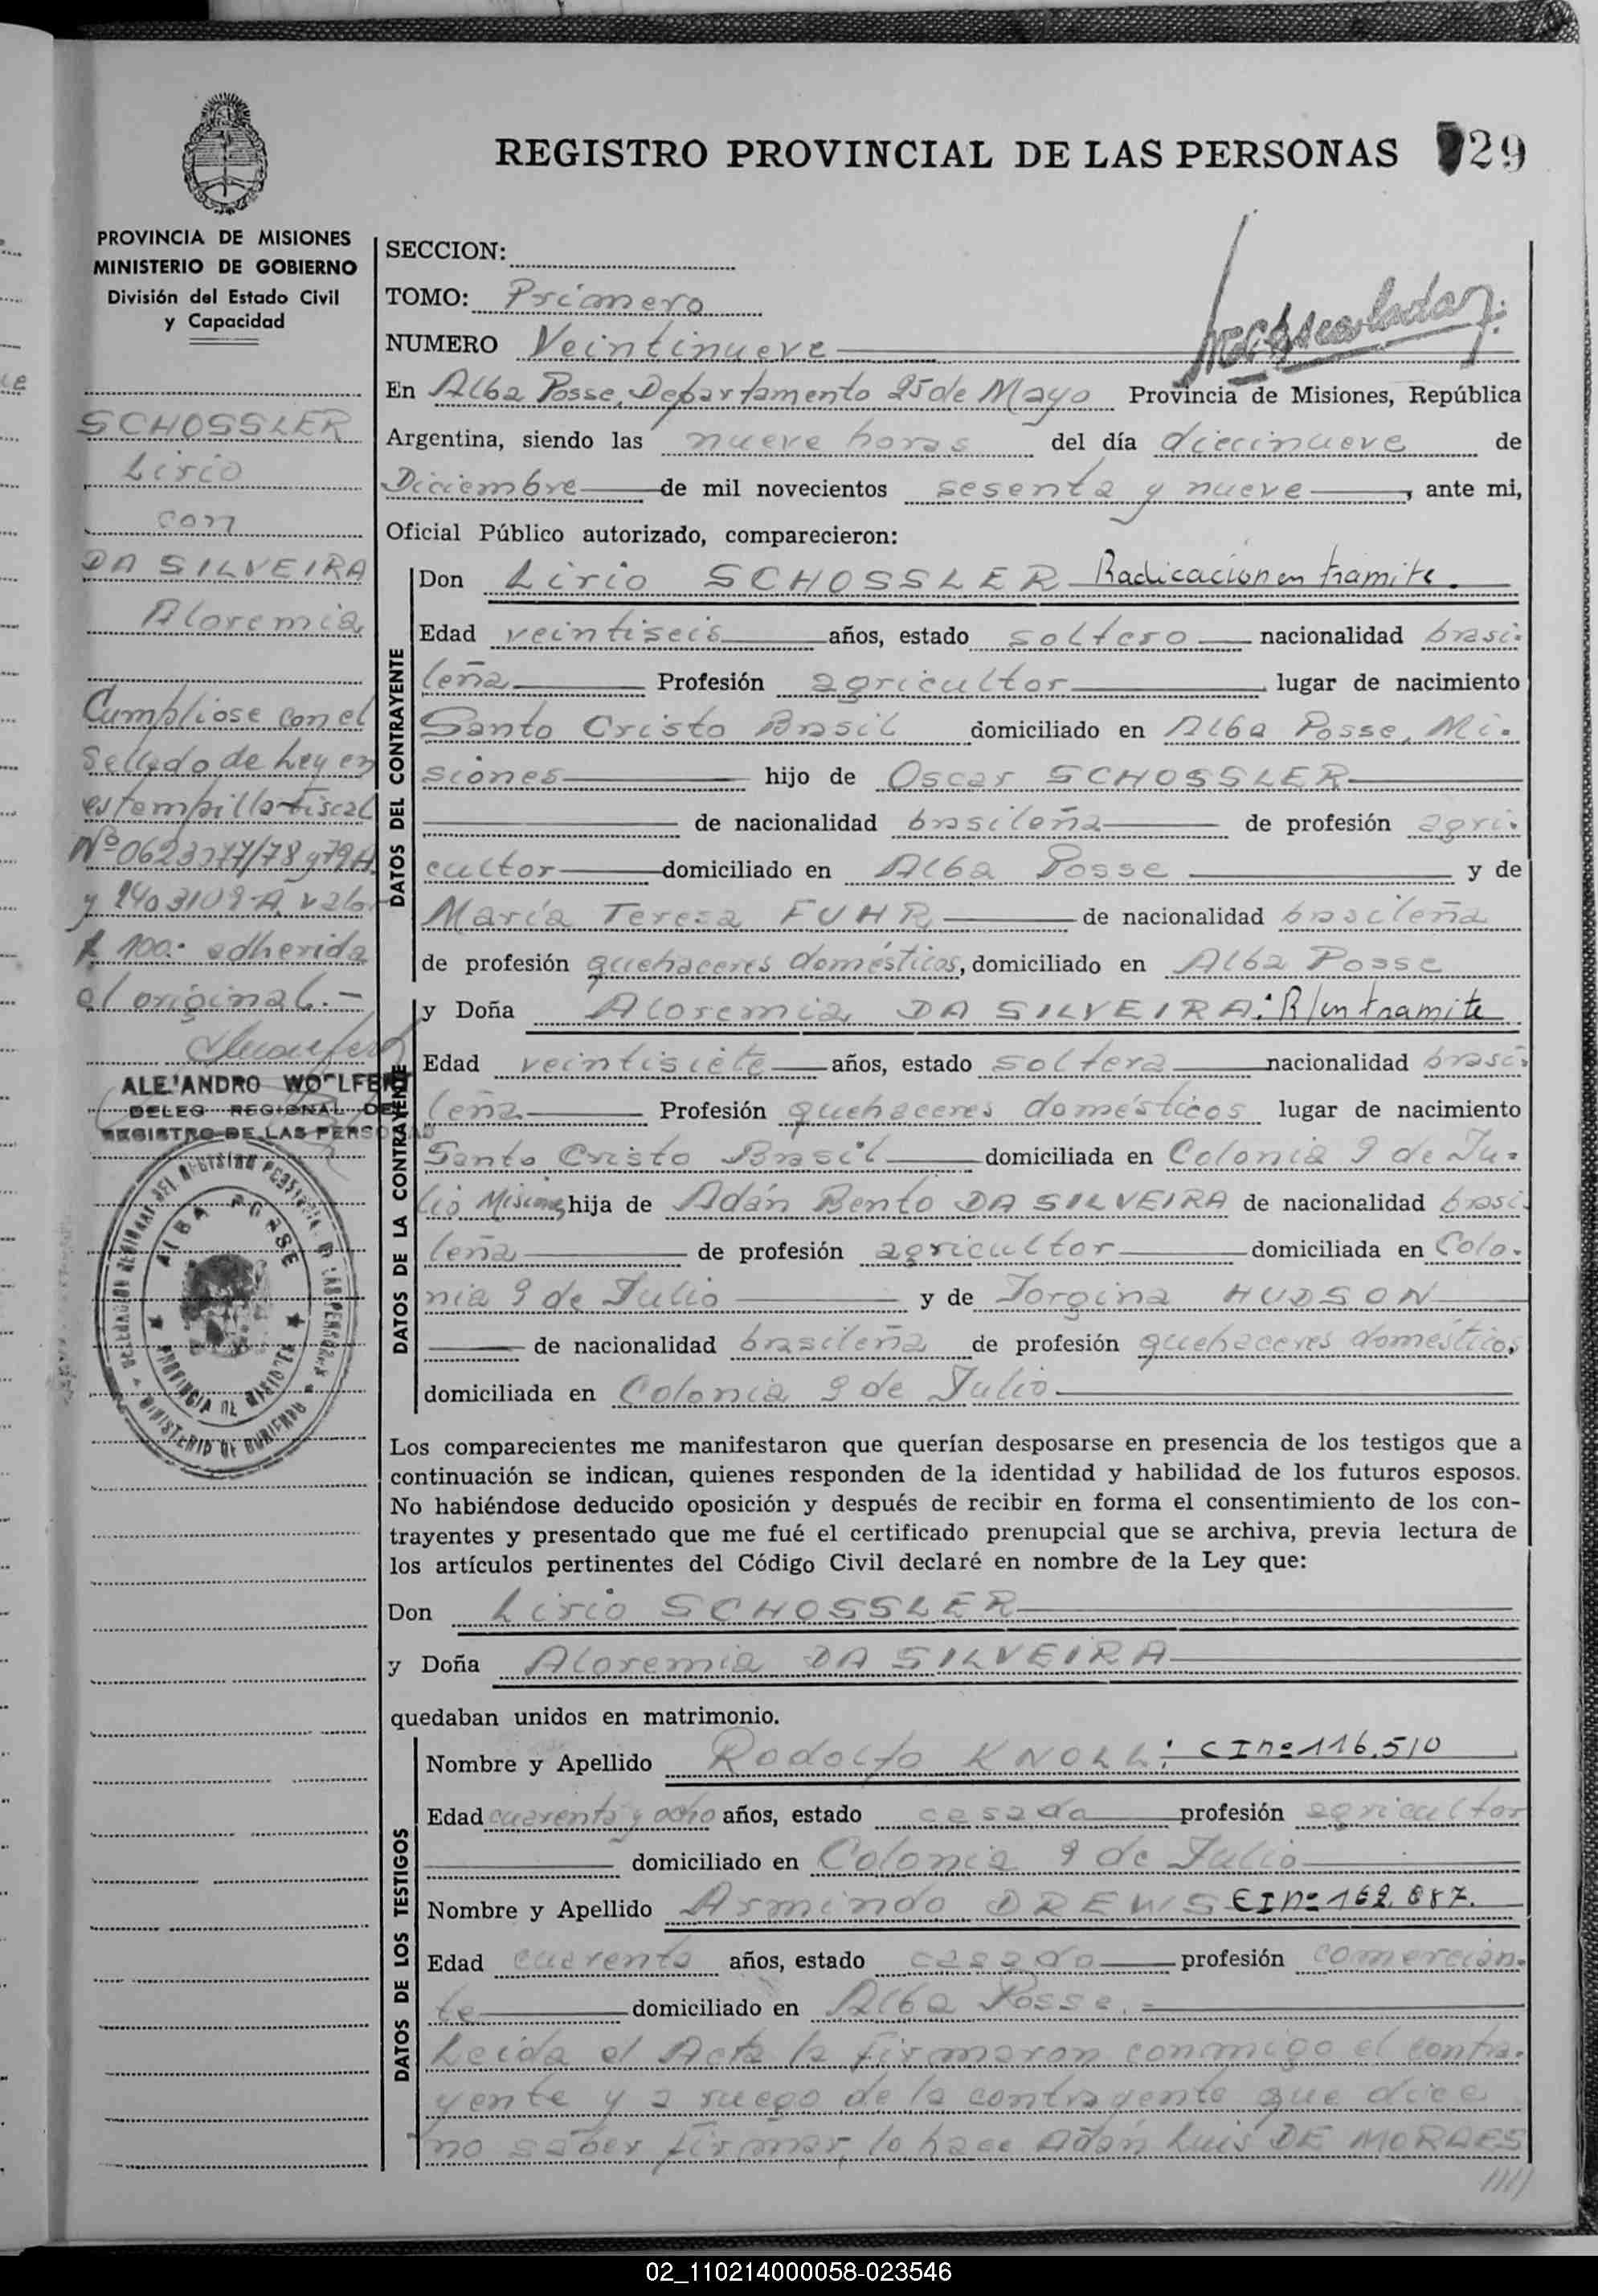 REGISTRO PROVINCIAL DE LAS PERSONAS 29
PROVINCIA DE MISIONES
MINISTERIO DE GOBIERNO
División del Estado Civil
y Capacidad
SCHOSSLER
Lirio
con
DA SILVEIRA
Aloremia
Cumpliose con el
Sellado de Ley en
estampilla fiscal
y 79A
y valor
$ 100.- adherida
al original.-
ALEJANDRO WOLFERT
DELEG REGIONAL DEL
REGISTRO DE LAS PERSONAS
ALBA POSSE
PROVINCIA DE MISIONES
MINISTERIO DE GOBIERNO
SECCION:
TOMO: Primero
NUMERO Veintinueve
En Alba Posse, Departamento 25 de Mayo Provincia de Misiones, República
Argentina, siendo las nueve horas del día diecinueve de
Diciembre de mil novecientos sesenta y nueve, ante mi,
Oficial Público autorizado, comparecieron:
DATOS DEL CONTRAYENTE
Don Lirio SCHOSSLER Radicación en tramite.
Edad veintiseis años, estado soltero nacionalidad brasi-
leña Profesión agricultor lugar de nacimiento
Santo Cristo Brasil domiciliado en Alba Posse, Mi-
siones hijo de Oscar SCHOSSLER
de nacionalidad brasileña de profesión agri-
cultor domiciliado en Alba Posse y de
María Teresa FUHR de nacionalidad brasileña
de profesión quehaceres domésticos, domiciliado en Alba Posse
DATOS DE LA CONTRAYENTE
y Doña Aloremia DA SILVEIRA: R/en tramite
Edad veintisiete años, estado soltera nacionalidad brasi-
leña Profesión quehaceres domésticos lugar de nacimiento
Santo Cristo Brasil domiciliada en Colonia 9 de Ju-
lio Misiones hija de Adán Bento DA SILVEIRA de nacionalidad brasi-
leña de profesión agricultor domiciliada en Colo-
nia 9 de Julio y de Jorgina HUDSON
de nacionalidad brasileña de profesión quehaceres domésticos,
domiciliada en Colonia 9 de Julio
Los comparecientes me manifestaron que querían desposarse en presencia de los testigos que a
continuación se indican, quienes responden de la identidad y habilidad de los futuros esposos.
No habiéndose deducido oposición y después de recibir en forma el consentimiento de los con-
trayentes y presentado que me fué el certificado prenupcial que se archiva, previa lectura de
los artículos pertinentes del Código Civil declaré en nombre de la Ley que:
Don Lirio SCHOSSLER
y Doña Aloremia DA SILVEIRA
quedaban unidos en matrimonio.
DATOS DE LOS TESTIGOS
Nombre y Apellido Rodolfo KNOLL: CI nº 116.510
Edad cuarenta y ocho años, estado casado profesión agricultor
domiciliado en Colonia 9 de Julio
Nombre y Apellido Armindo DREWS CI nº
Edad cuarenta años, estado casado profesión comercian-
te domiciliado en Alba Posse.
Leida el Acta la firmaron conmigo el contra-
yente y a ruego de la contrayente que dice
no saber firmar, lo hace Adán Luis DE MORAES
////
02_110214000058-023546